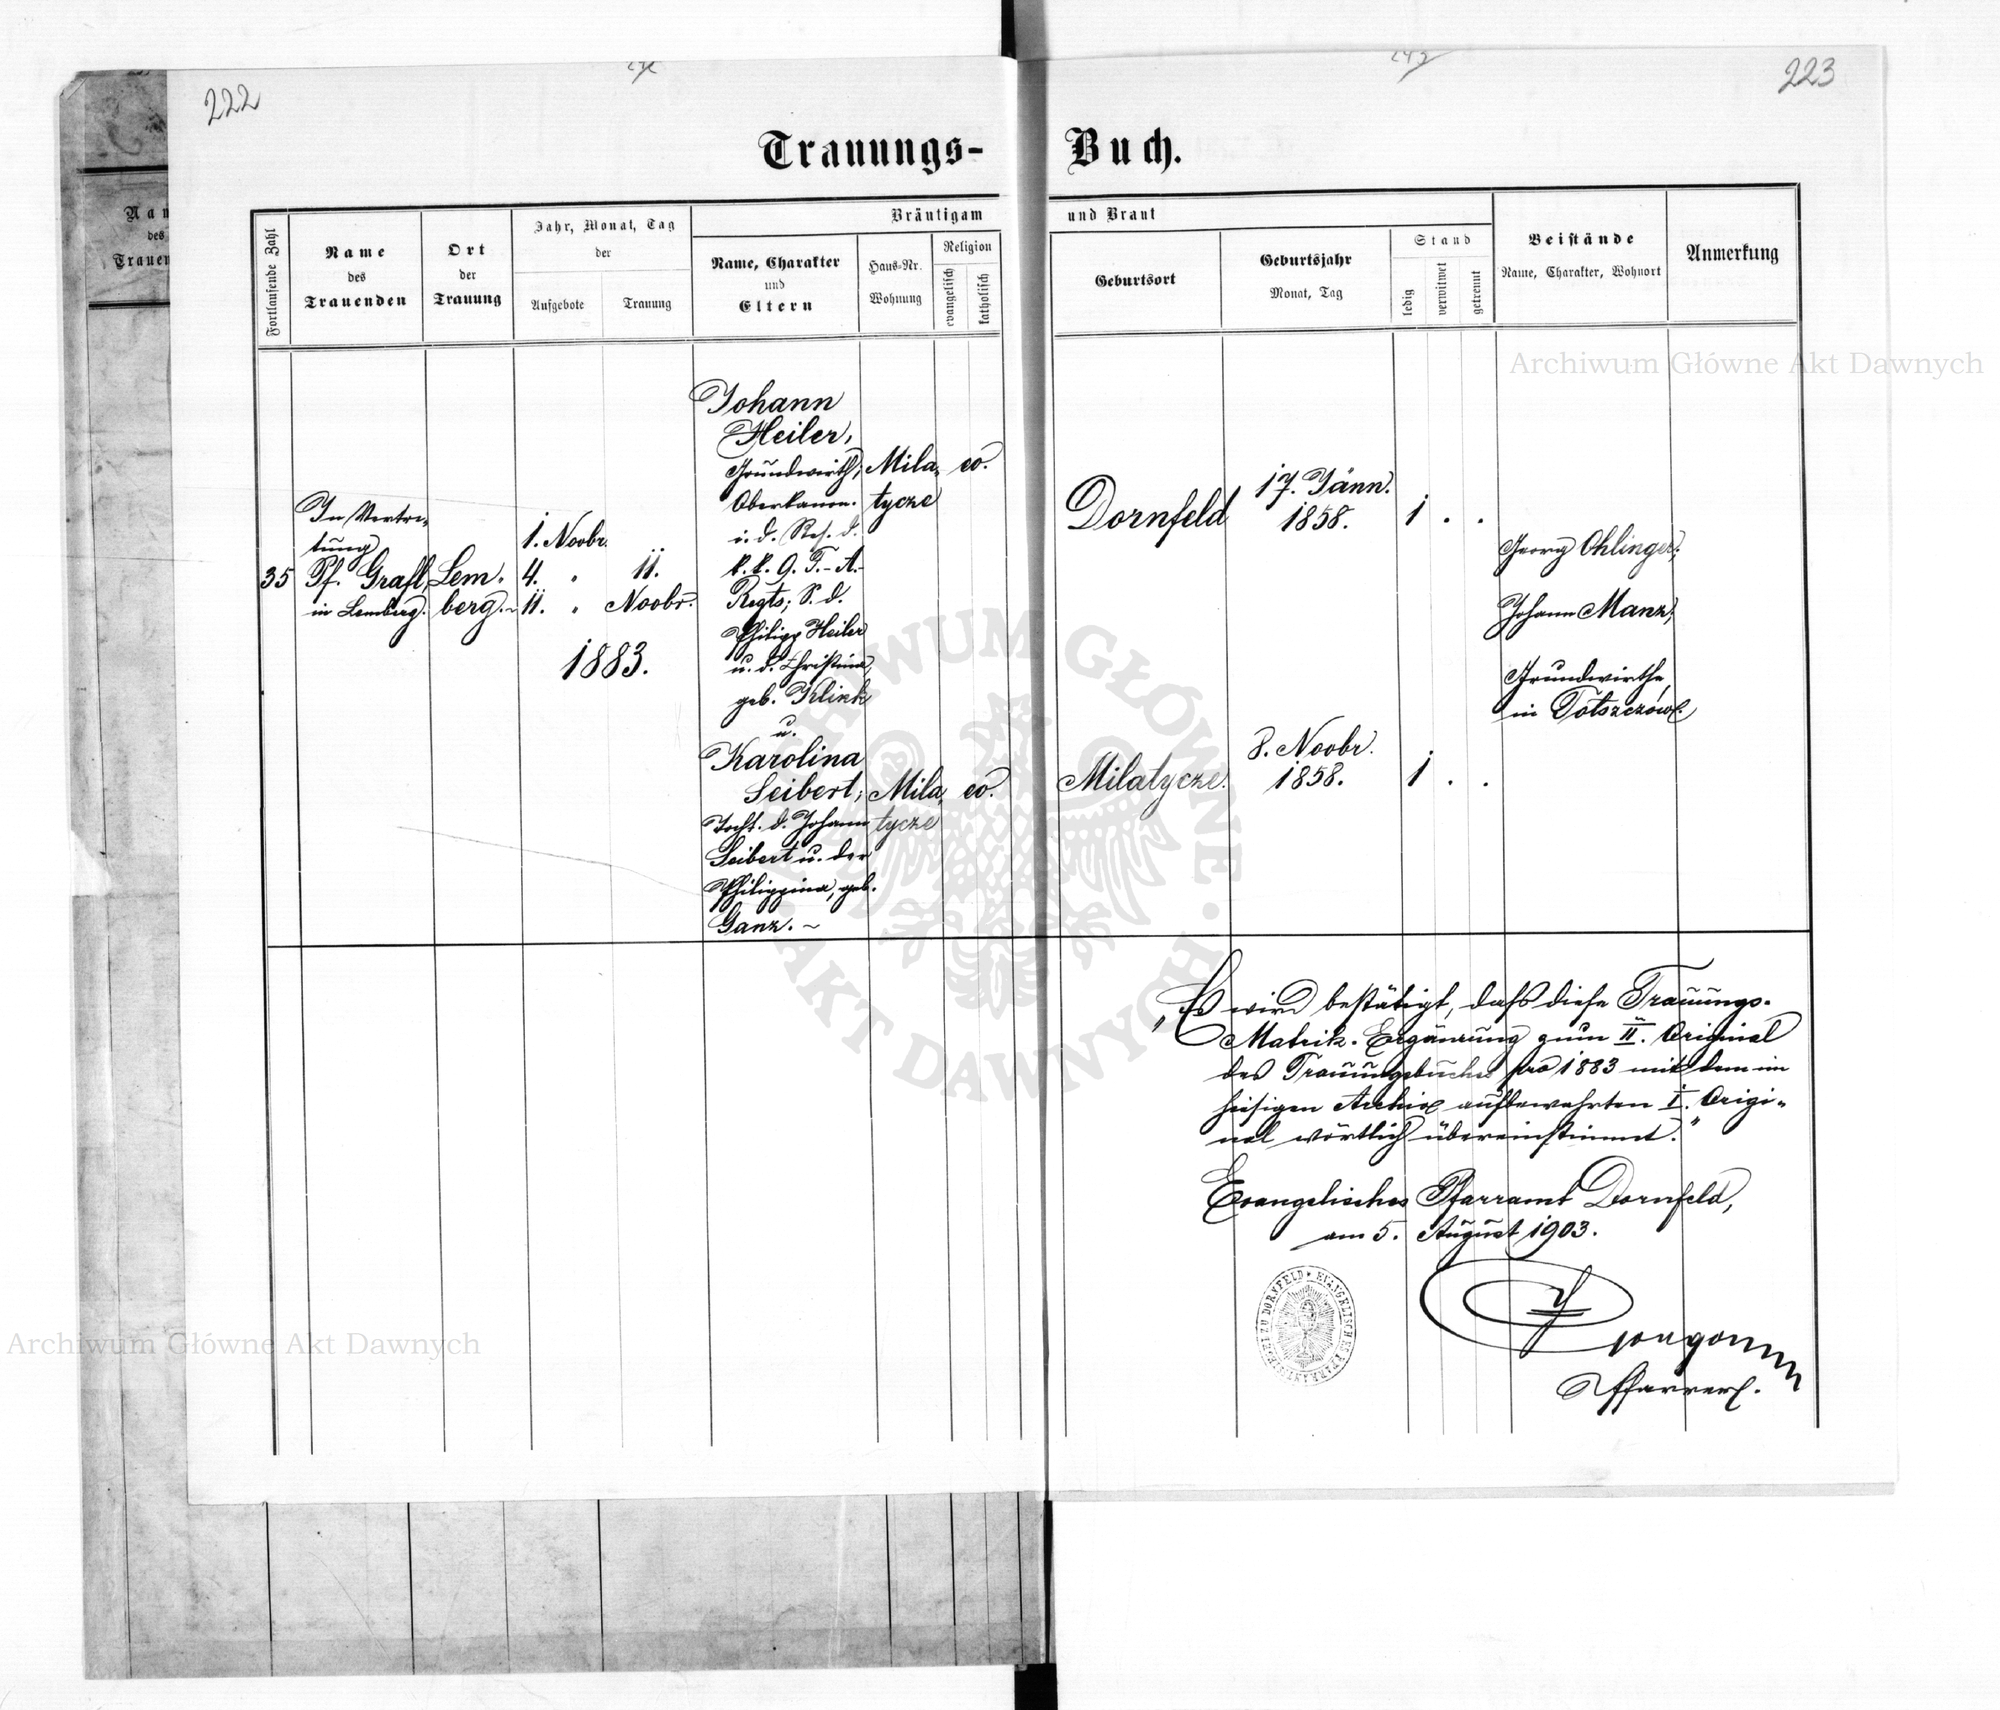 222
223
Trauungs-Buch.
Fortlaufende Zahl
Name
des
Trauenden
Ort
der
Trauung
Jahr, Monat, Tag
der
Aufgebote
Trauung
Bräutigam und Braut
Name, Charakter
und
Eltern
Haus-Nr.
Wohnung
Religion
evangelisch
katholisch
Geburtsort
Geburtsjahr
Monat, Tag
Stand
ledig
verwitwet
getrennt
Beistände
Name, Charakter, Wohnort
Anmerkung
35
In Vertre-
tung
Pf. Grafl,
in Lemberg.
Lem-
berg.
1. Novbr.
4. "
11. "
11.
Novbr.
1883.
Johann
Heiler,
Grundwirth;
Oberkanon.
i. d. Res. d.
k. k. 9. F.-A.-
Regts; S. d.
Philipp Heiler
u. d. Christina,
geb. Klink
u.
Karolina
Seibert;
Tocht. d. Johann
Seibert u. der
Philippina, geb.
Ganz. ~
Mila-
tycze
ev.
Mila-
tycze
ev.
Dornfeld
17. Jänn.
1858.
1 . .
Milatycze.
8. Novbr.
1858.
1 . .
Georg Ohlinger;
Johann Manz;
Grundwirthe
in Tołszczów.
„Es wird bestätigt, dass diese Trauungs-
Matrik-Ergänzung zum II. Original
des Trauungsbuches pro 1883 mit dem im
hiesigen Archiv aufbewahrten I. Origi-
nal wörtlich übereinstimmt."
Evangelisches Pfarramt Dornfeld,
am 5. August 1903.
Pfarrer.
Name
des
Trauen
Archiwum Główne Akt Dawnych
Archiwum Główne Akt Dawnych
ARCHIWUM GŁÓWNE AKT DAWNYCH